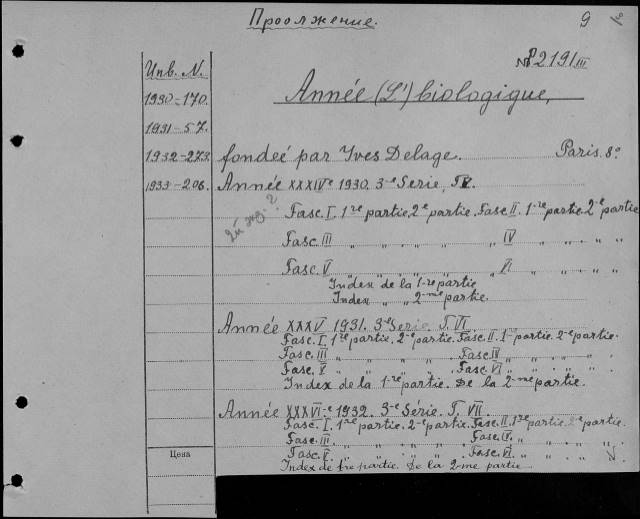 Проолжение. 9
№P2191 III
Инв. N.
Année (L') biologique,
1930-170.
1931-57.
1932-273. fondeé par Yves Delage. Paris. 8º
1933-206. Année XXXIVe 1930. 3-e Serie, T. V.
2й экз. ?
Fasc. I. 1-re partie. 2e partie. Fasc. II. 1-re partie. 2e partie
Fasc. III „ „ „ „ „ IV „ „ „ „
Fasc. V „ „ „ „ „ VI „ „ „ „
Index de la 1-re partie
Index „ „ 2-me partie.
Année XXXV 1931. 3-e Serie. T. VI.
Fasc. I. 1-re partie. 2-e partie. Fasc. II. 1-re partie. 2-e partie.
Fasc. III „ „ „ „ Fasc. IV „ „ „ „
Fasc. V „ „ „ „ Fasc. VI „ „ „ „
Index de la 1-re partie. De la 2-me partie.
Année XXXVI-e 1932. 3-e Série. T. VII.
Fasc. I. 1-re partie. 2-e partie. Fasc. II. 1-re partie. 2-e partie.
Fasc. III. „ „ „ „ Fasc. IV. „ „ „ „
Цена Fasc. V. „ „ „ „ Fasc. VI. „ „ „ „
Index de 1-re partie. De la 2-me partie